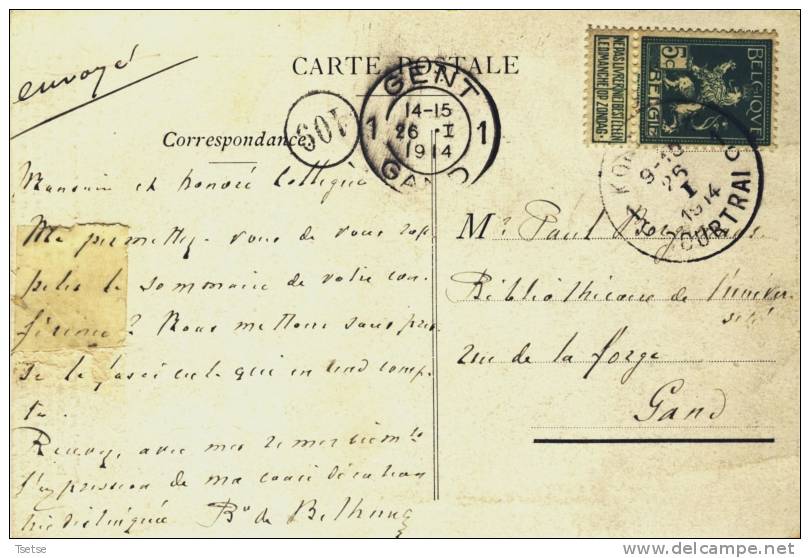 envoyé
CARTE POSTALE
Correspondance
GENT
14-15
1 26 I 1
1914
GAND
109
BELGIQUE
5c
BELGIË
NE PAS LIVRER LE DIMANCHE
NIET BESTELLEN OP ZONDAG
KO
9-10
26
I
1914
COURTRAI
Monsieur et honoré Collègue
Me permettez-vous de vous rap
peler le sommaire de votre con
férence? Nous mettons sous pres
se le fascicule qui en rend comp
te.
Recevez, avec mes remerciements
l'expression de ma considération
très distinguée Bon de Bethune
Mr Paul
Bibliothécaire de l'univer
sité
rue de la forge
Gand
Tsetse
www.delcampe.net